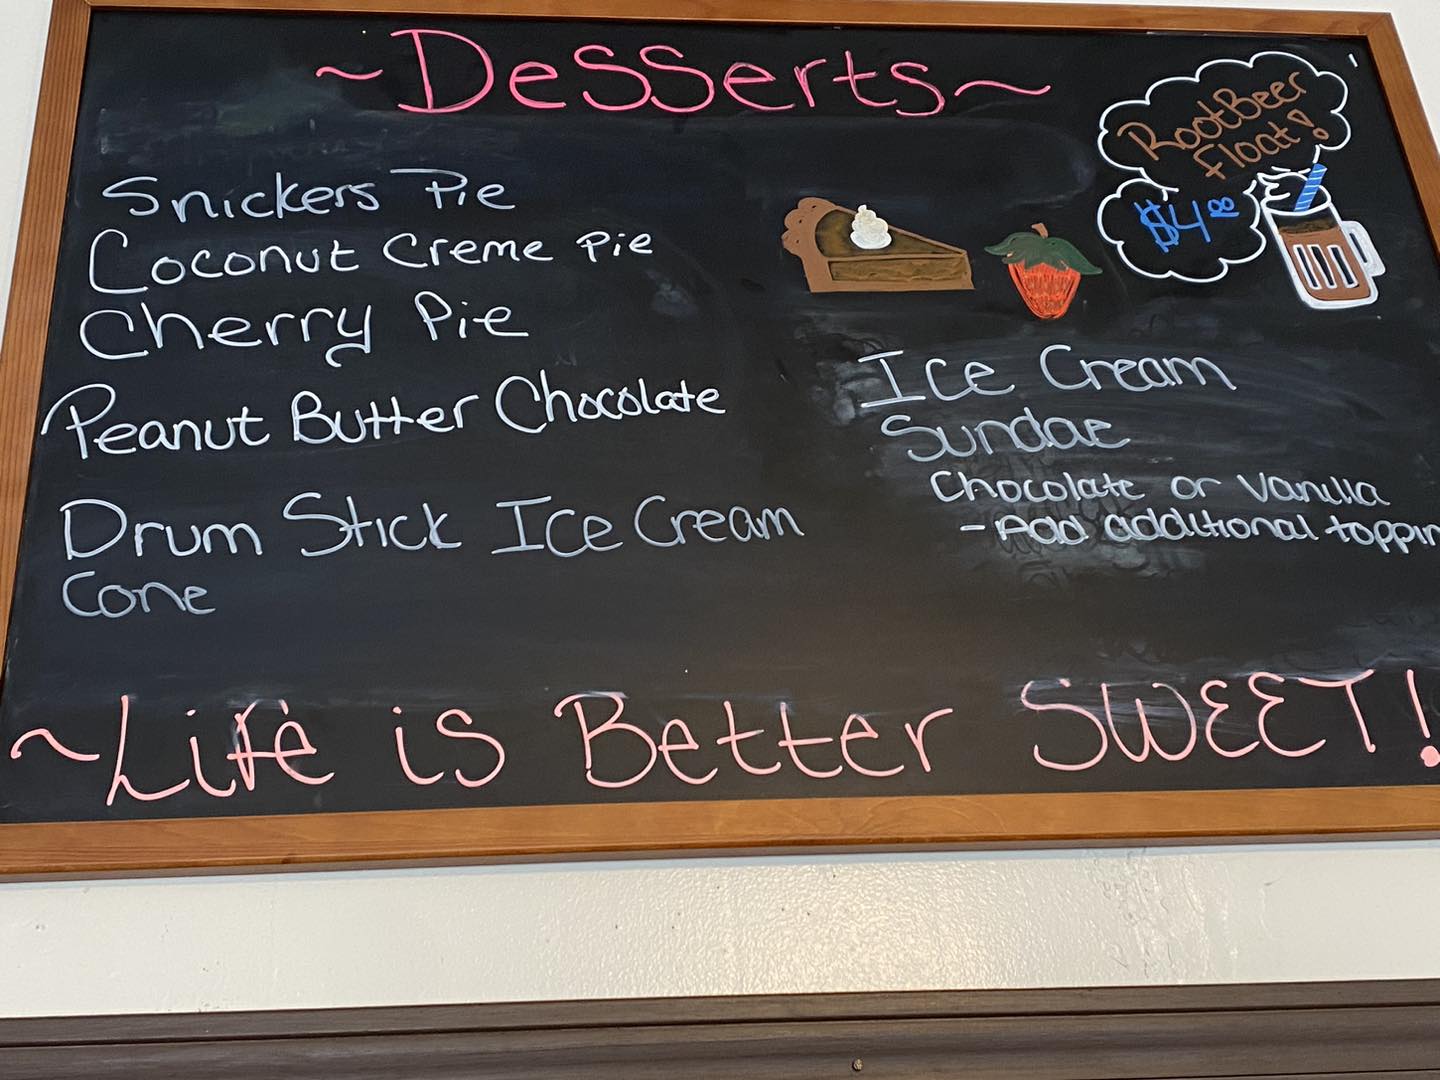 ~Desserts~
RootBeer
Float!
$4.00
Snickers Pie
Coconut Creme Pie
Cherry Pie
Peanut Butter Chocolate
Drum Stick Ice Cream
Cone
Ice Cream
Sundae
Chocolate or Vanilla
- Add additional toppin
~Life is Better SWEET!